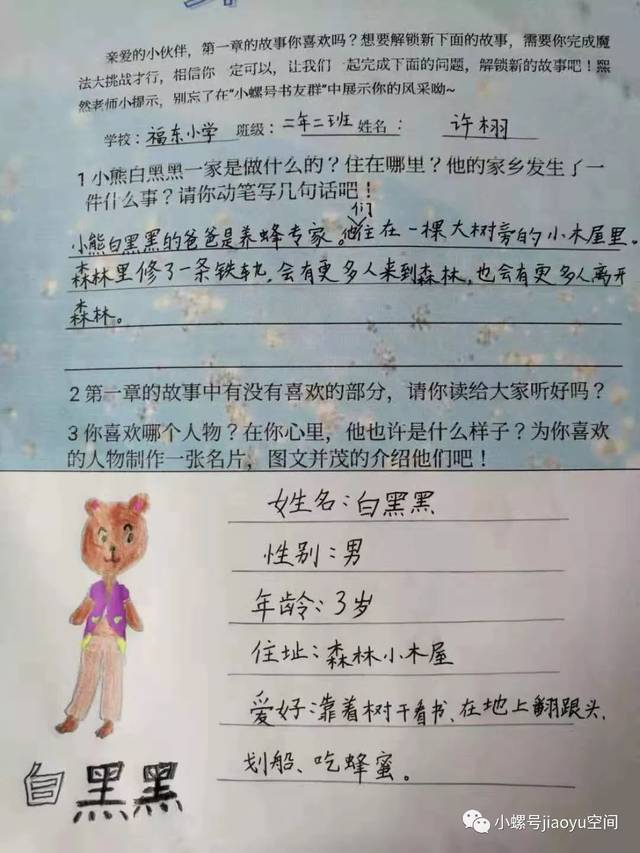 亲爱的小伙伴，第一章的故事你喜欢吗？想要解锁新下面的故事，需要你完成魔
法大挑战才行，相信你一定可以，让我们一起完成下面的问题，解锁新的故事吧！熙
然老师小提示，别忘了在“小螺号书友群”中展示你的风采呦~
学校：福东小学 班级：二年二班 姓名： 许栩
1 小熊白黑黑一家是做什么的？住在哪里？他的家乡发生了一
件什么事？请你动笔写几句话吧！
们
小熊白黑黑的爸爸是养蜂专家。他住在一棵大树旁的小木屋里。
森林里修了一条铁轨，会有更多人来到森林，也会有更多人离开
森林。
2 第一章的故事中有没有喜欢的部分，请你读给大家听好吗？
3 你喜欢哪个人物？在你心里，他也许是什么样子？为你喜欢
的人物制作一张名片，图文并茂的介绍他们吧！
姓名：白黑黑
性别：男
年龄：3岁
住址：森林小木屋
爱好：靠着树干看书、在地上翻跟头、
划船、吃蜂蜜。
白黑黑
小螺号jiaoyu空间